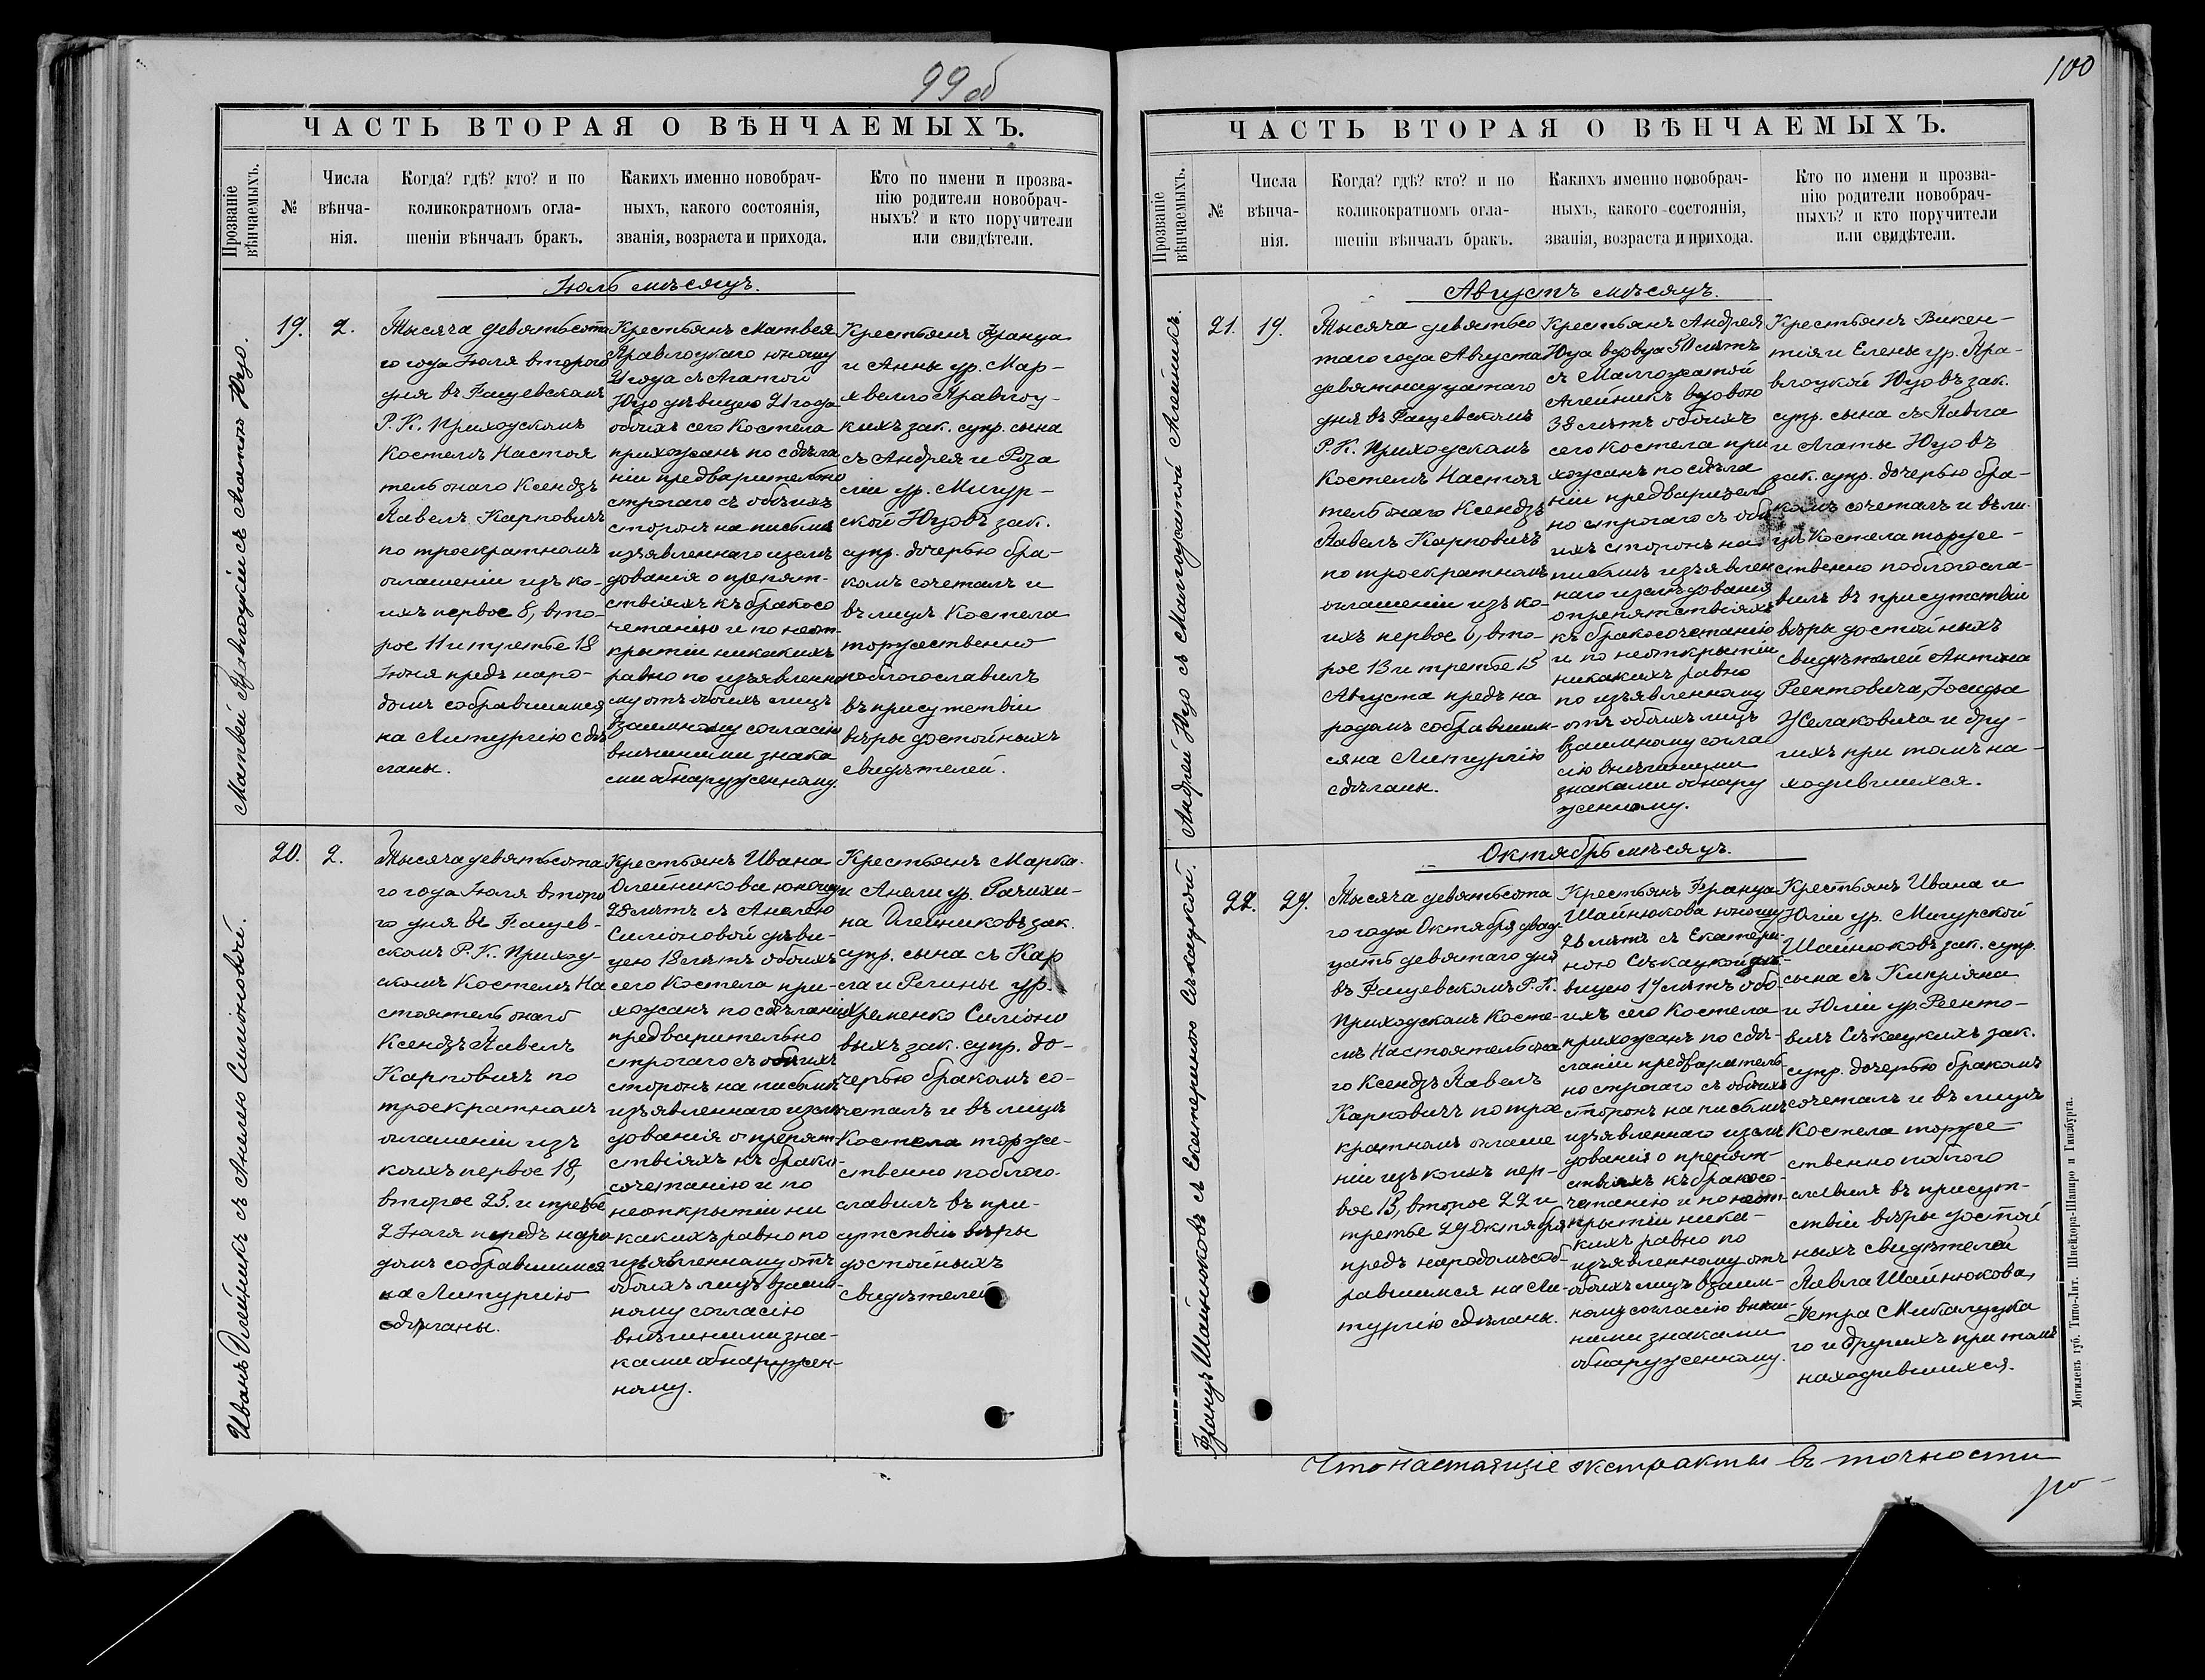 99 об
ЧАСТЬ ВТОРАЯ О ВѢНЧАЕМЫХЪ.
Прозваніе
вѣнчаемыхъ.
№
Числа
вѣнча-
нія.
Когда? гдѣ? кто? и по
коликократномъ огла-
шеніи вѣнчалъ бракъ.
Какихъ именно новобрач-
ныхъ, какого состоянія,
званія, возраста и прихода.
Кто по имени и прозва-
нію родители новобрач-
ныхъ? и кто поручители
или свидѣтели.
Іюль мѣсяцъ.
Матвѣй Правлоцкій съ Агатою Юцо.
19.
2.
Тысяча девятьсота
го года Іюля второго
дня въ Фащевскомъ
Р. К. Приходскомъ
Костелѣ Настоя
тель онаго Ксендзъ
Павелъ Карповичъ
по троекратномъ
оглашеніи изъ ко-
ихъ первое 8, вто-
рое 11 и третье 18
Іюня предъ наро-
домъ собравшимся
на Литургію сдѣ
ланы.
Крестьянъ Матвея
Правлоцкаго юношу
21 года съ Агатой
Юцо дѣвицею 21 года
обоихъ сего Костела
прихожанъ по сдѣла
ніи предварительно
строгаго съ обѣихъ
сторонъ на письмѣ
изъявленнаго изслѣ
дованія о препят-
ствіяхъ къ бракосо
четанію и по неот-
крытіи никакихъ
равно по изъявленно
му отъ обоихъ лицъ
взаимному согласію
внѣшними знака
ми обнаруженному.
Крестьянъ Франца
и Анны ур. Мар-
хвелло Правлоц-
кихъ зак. супр. сына
съ Андрея и Роза
ліи ур. Мигур-
ской Юцовъ зак.
супр. дочерью бра-
комъ сочеталъ и
въ лицѣ Костела
торжественно
поблагословилъ
въ присутствіи
вѣры достойныхъ
Свидѣтелей.
Иванъ Олейникъ съ Анелею Симоновой.
20.
2.
Тысяча девятьсота
го года Іюля второ
го дня въ Фащев-
скомъ Р. К. Приход-
скомъ Костелѣ На
стоятель онаго
Ксендзъ Павелъ
Карповичъ по
троекратномъ
оглашеніи изъ
коихъ первое 18,
второе 25. и третье
2 Іюля передъ наро
домъ собравшимся
на Литургію
сдѣланы.
Крестьянъ Ивана
Олейникова юношу
28 лѣтъ съ Анелею
Симоновой дѣви-
цею 18 лѣтъ обоихъ
сего Костела при-
хожанъ по сдѣланіи
предварительно
строгаго съ обѣихъ
сторонъ на письмѣ
изъявленнаго изслѣ
дованія о препят-
ствіяхъ къ брако-
сочетанію и по
неоткрытіи ни
какихъ равно по
изъявленному отъ
обоихъ лицъ взаим-
ному согласію
внѣшними зна-
ками обнаружен-
ному.
Крестьянъ Марка
и Анели ур. Рачихи-
на Олейниковъ зак.
супр. сына съ Кар
ла и Регины ур.
Хроменко Симоно
выхъ зак. супр. до-
черью бракомъ со-
четалъ и въ лицѣ
Костела торже-
ственно поблаго-
славилъ въ при-
сутствіи вѣры
достойныхъ
Свидѣтелей
100
ЧАСТЬ ВТОРАЯ О ВѢНЧАЕМЫХЪ.
Прозваніе
вѣнчаемыхъ.
№
Числа
вѣнча-
нія.
Когда? гдѣ? кто? и по
коликократномъ огла-
шеніи вѣнчалъ бракъ.
Какихъ именно новобрач-
ныхъ, какого состоянія,
званія, возраста и прихода.
Кто по имени и прозва-
нію родители новобрач-
ныхъ? и кто поручители
или свидѣтели.
Августъ мѣсяцъ.
Андрей Юцо съ Малгожатой Алейникъ.
21.
19.
Тысяча девятьсо
таго года Августа
девятнадцатаго
дня въ Фащевскомъ
Р. К. Приходскомъ
Костелѣ Настоя
тель онаго Ксендзъ
Павелъ Карповичъ
по троекратномъ
оглашеніи изъ ко-
ихъ первое 6, вто-
рое 13 и третье 15
Августа предъ на
родомъ собравшим-
ся на Литургію
сдѣланы.
Крестьянъ Андрея
Юца вдовца 50 лѣтъ
съ Малгожатой
Алейникъ вдовою
38 лѣтъ обоихъ
сего Костела при
хожанъ по сдѣла
ніи предваритель
но строгаго съ обѣ
ихъ сторонъ на
письмѣ изъявлен
наго изслѣдованія
о препятствіяхъ
къ бракосочетанію
и по неоткрытіи
никакихъ равно
по изъявленному
отъ обоихъ лицъ
взаимному согла
сію внѣшними
знаками обнару
женному.
Крестьянъ Викен-
тія и Елены ур. Пра-
влоцкой Юцовъ зак.
супр. сына съ Павла
и Агаты Юцовъ
зак. супр. дочерью бра-
комъ сочеталъ и въ ли-
цѣ Костела торже-
ственно поблогосла-
вилъ въ присутствіи
вѣры достойныхъ
Свидѣтелей Антона
Реентовича, Іосифа
Желаковича и дру-
гихъ при томъ на-
ходившихся.
Октябрь мѣсяцъ.
Францъ Шайнюковъ съ Екатериною Сѣкацкой.
22.
29.
Тысяча девятьсота
го года Октября двад-
цать девятаго дня
въ Фащевскомъ Р. К.
Приходскомъ Косте-
лѣ Настоятель она
го Ксендзъ Павелъ
Карповичъ по трое
кратномъ оглаше
ніи изъ коихъ пер-
вое 15, второе 22 и
третье 29 Октября
предъ народомъ соб-
равшимся на Ли-
тургію сдѣланы.
Крестьянъ Франца
Шайнюкова юношу
28 лѣтъ съ Екатери-
ною Сѣкацкой дѣ-
вицею 19 лѣтъ обо-
ихъ сего Костела
прихожанъ по сдѣ-
ланіи предваритель
но строгаго съ обѣихъ
сторонъ на письмѣ
изъявленнаго изслѣ
дованія о препят-
ствіяхъ къ бракосо-
четанію и по неот-
крытіи ника-
кихъ равно по
изъявленному отъ
обоихъ лицъ взаим-
ному согласію внѣш-
ними знаками
обнаруженному.
Крестьянъ Ивана и
Юліи ур. Мигурской
Шайнюковъ зак. супр.
сына съ Кипріяна
и Юліи ур. Реенто-
вичъ Сѣкацкихъ зак.
супр. дочерью бракомъ
сочеталъ и въ лицѣ
Костела торже-
ственно поблого
славилъ въ присут-
ствіи вѣры достой
ныхъ свидѣтелей
Павла Шайнюкова,
Петра Михалуцка
го и другихъ при томъ
находившихся.
Могилевъ губ. Типо-Лит. Шнейдора-Шапиро и Гинзбурга.
Что настоящіе экстракты въ точности